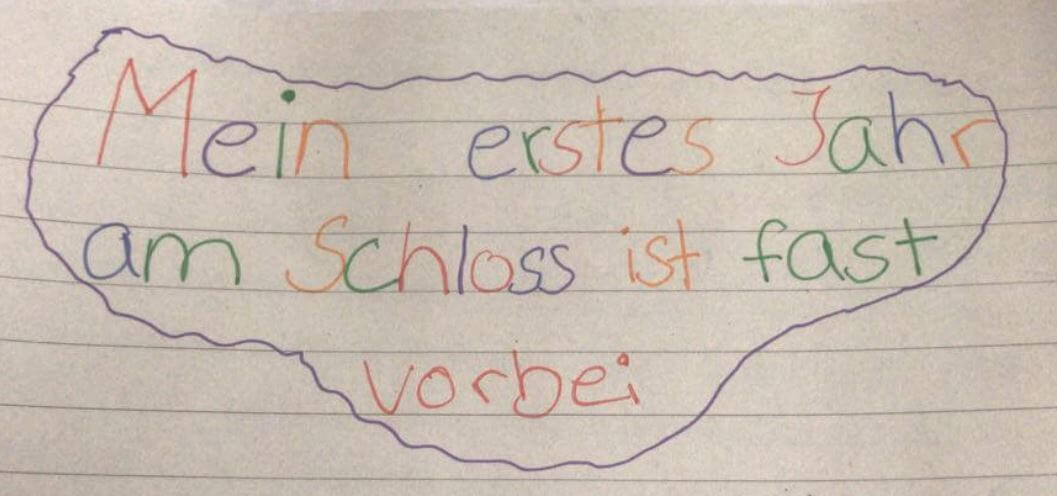 Mein erstes Jahr
am Schloss ist fast
vorbei